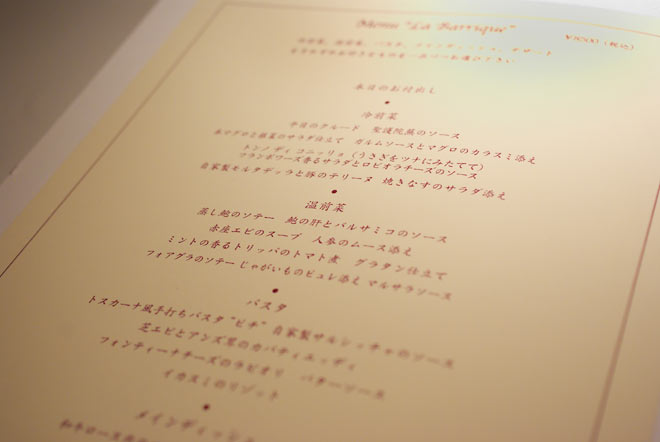 Menu "La Barrique"
¥8800 (税込)
冷前菜、温前菜、パスタ、メインディッシュ、デザート
それぞれお好きなものを一品づつお選び下さい
本日のお付出し
冷前菜
本日のクルード 聖護院蕪のソース
本マグロと根菜のサラダ仕立て ガルムソースとマグロのカラスミ添え
トンノ ディ コニッリョ (うさぎをツナにみたてて)
フランボワーズ香るサラダとロビオラチーズのソース
自家製モルタデッラと豚のテリーヌ 焼きなすのサラダ添え
温前菜
蒸し鮑のソテー 鮑の肝とバルサミコのソース
赤座エビのスープ 人参のムース添え
ミントの香るトリッパのトマト煮 グラタン仕立て
フォアグラのソテー じゃがいものピュレ添え マルサラソース
パスタ
トスカーナ風手打ちパスタ "ピチ" 自家製サルシッチャのソース
芝エビとアンズ茸のカバティエッディ
フォンティーナチーズのラビオリ バターソース
イカスミのリゾット
メインディッシュ
和牛ロース